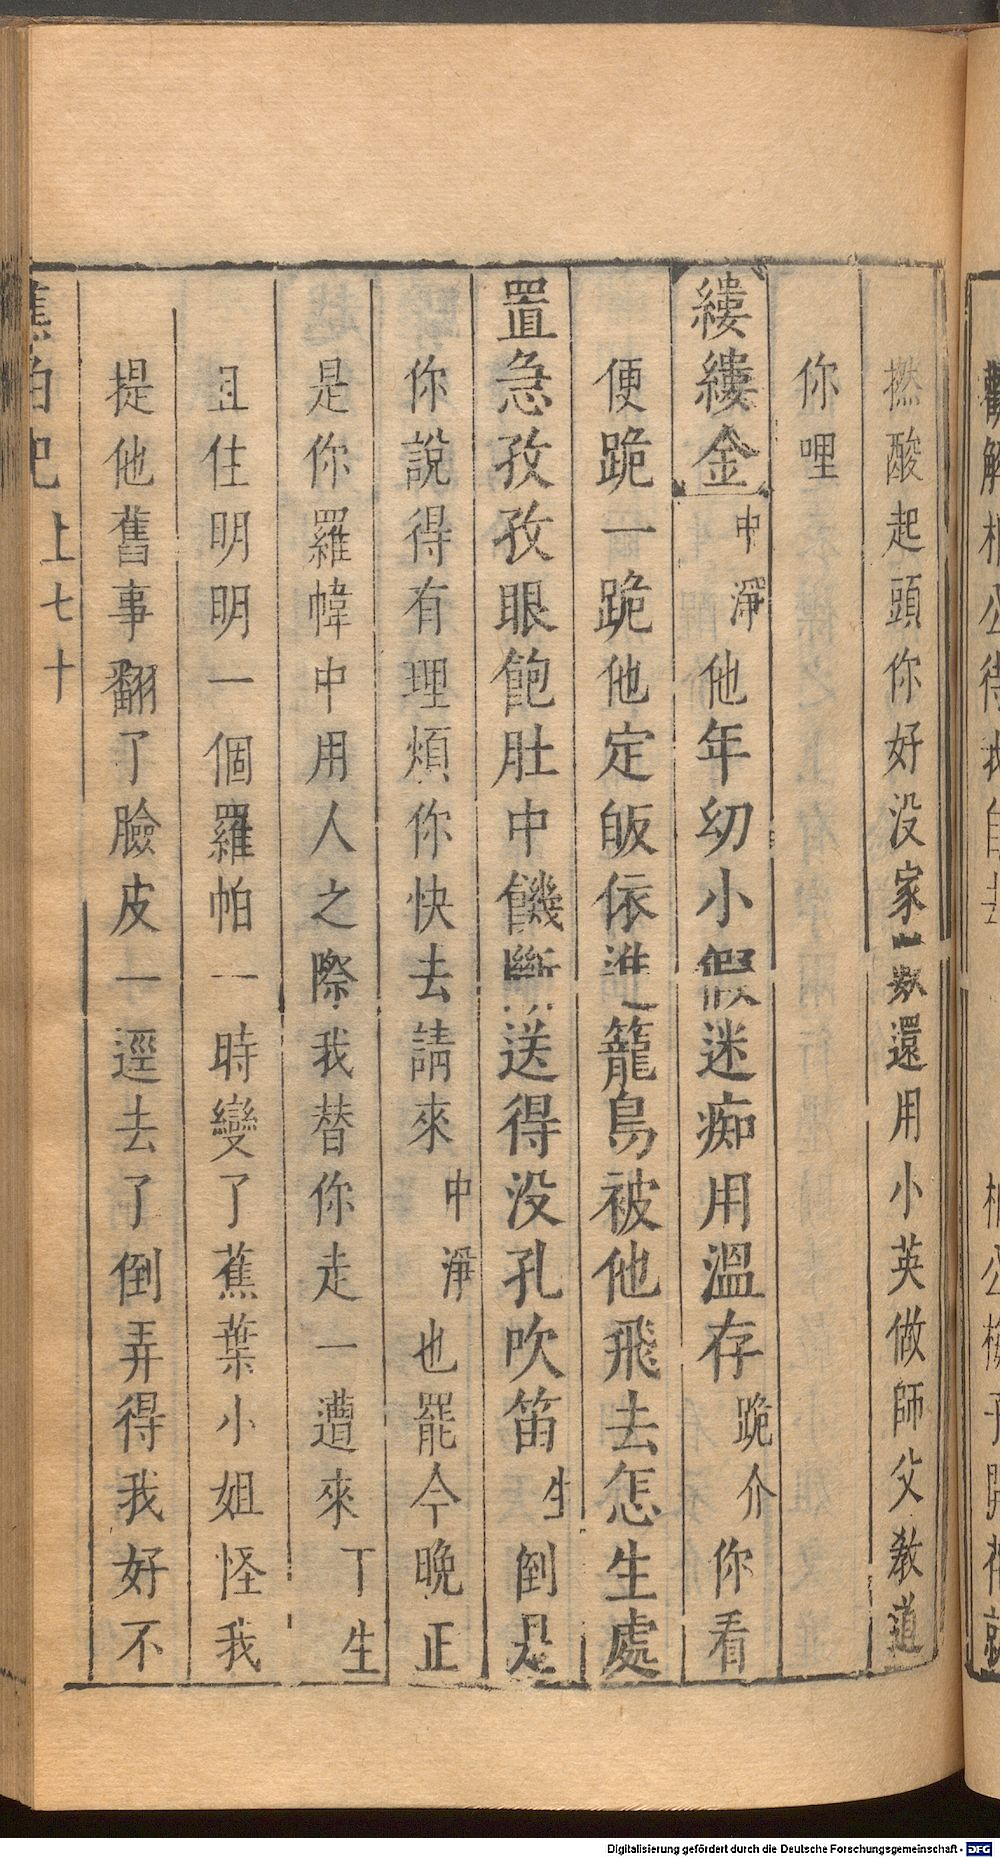 撚酸起頭你好没家數還用小英做師父教道
你哩
縷縷金 中淨 他年幼小假迷痴用溫存 跪介 你看
便跪一跪他定皈依進籠鳥被他飛去怎生處
置急孜孜眼飽肚中饑斷送得没孔吹笛 生 倒是
你說得有理煩你快去請來 中淨 也罷今晚正
是你羅幃中用人之際我替你走一遭來 丁生
且住明明一個羅帕一時變了蕉葉小姐怪我
提他舊事翻了臉皮一逕去了倒弄得我好不
蕉帕記 上七十
Digitalisierung gefördert durch die Deutsche Forschungsgemeinschaft - DFG